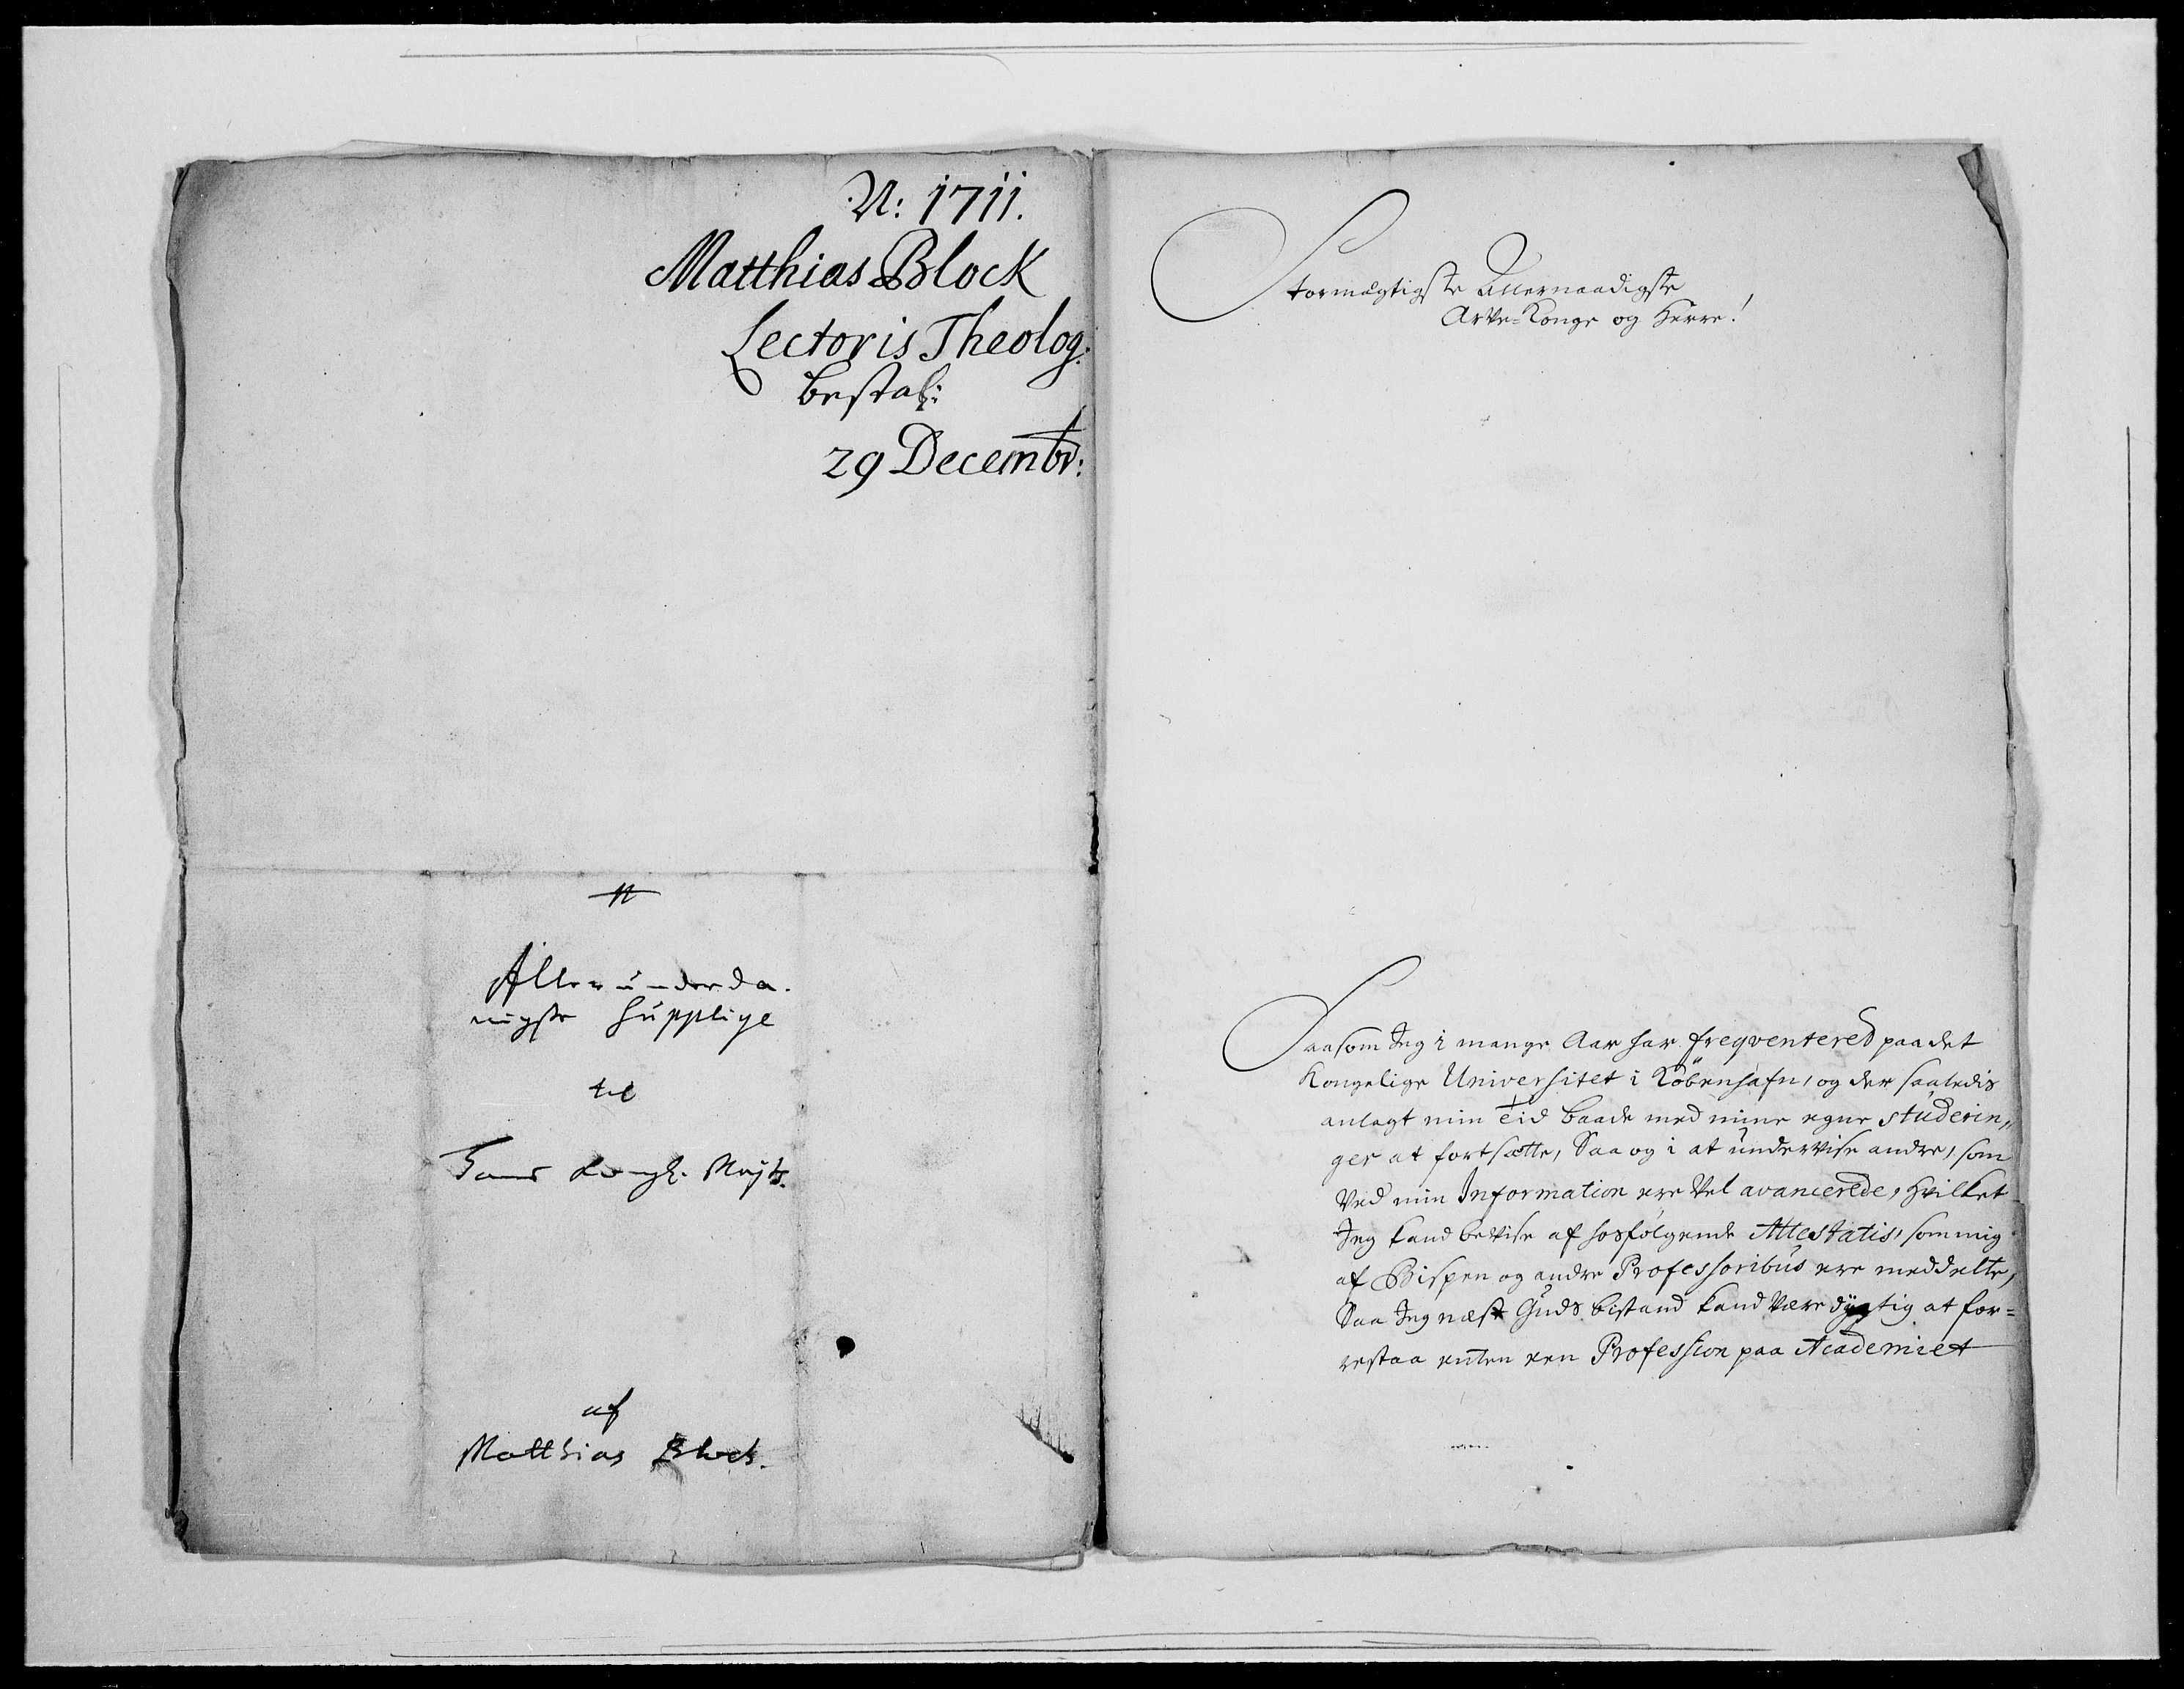 N: 1711.
Matthias Block
Lectoris Theolog:
bestal:
29 Decembr:
Allerunderda-
nigste supplique
til
Hans Kongl. Mayts.
af
Matthias Block.
Stormægtigste Allernaadigste
Arve-Konge og Herre!
Saasom Jeg i mange Aar har freqventered paa det
Kongelige Universitet i Köbenhafn, og der saaledis
anlagt min Tid baade med mine egne studerin,,
ger at fortsætte, Saa og i at undervise andre, som
ved min Information ere vel avancerede, hvilket
Jeg kand bevise af hosfølgende Attestatis, som mig
af Bispen og andre Professoribus ere meddelte,
Saa Jeg næst Guds bistand kand være dygtig at for=
restaa enten een Profession paa Academiet